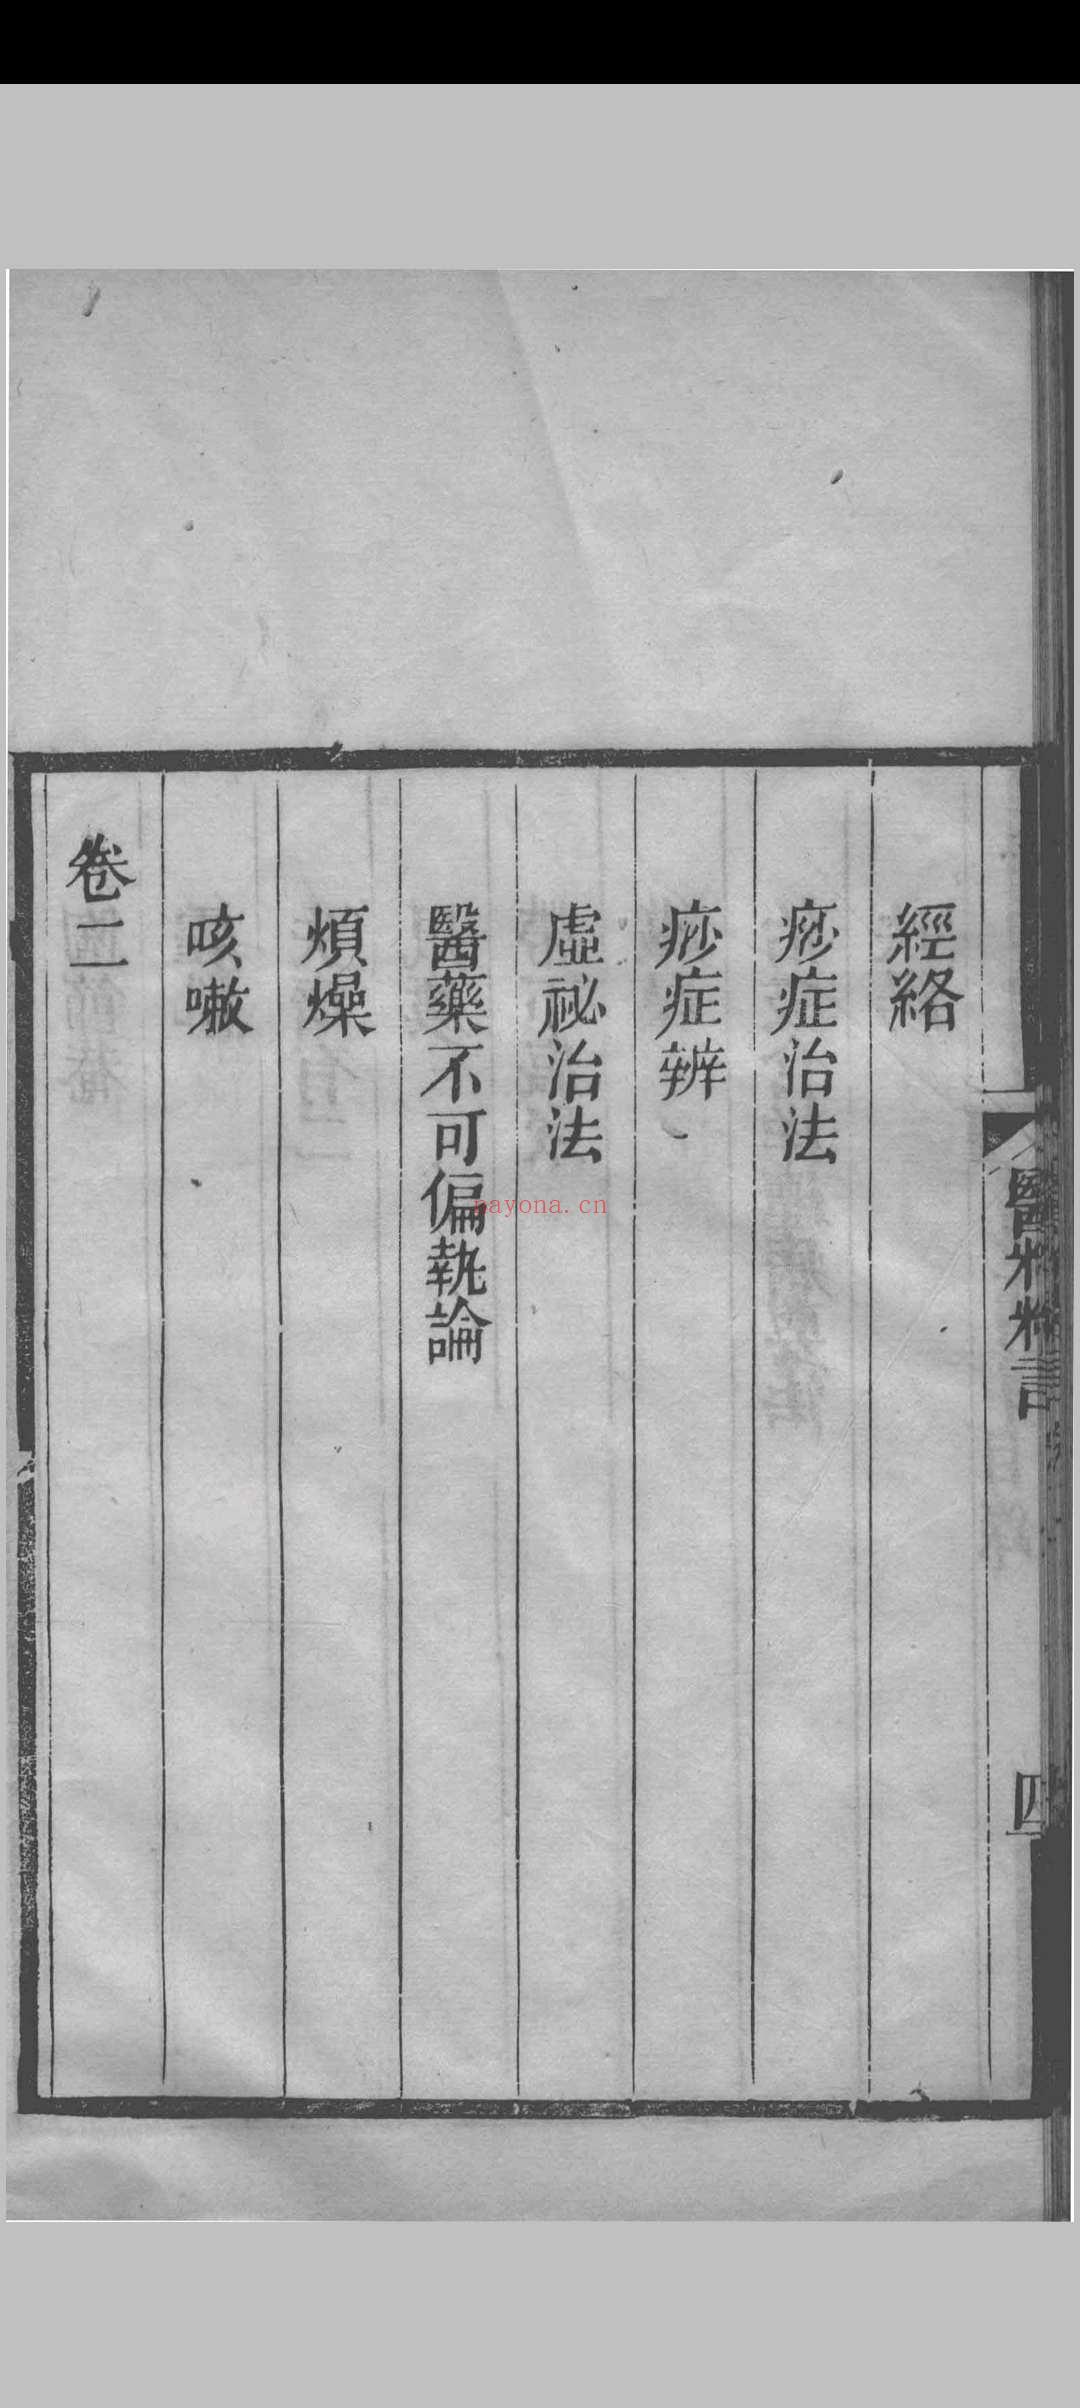 經絡
痧症治法
痧症辨
虛祕治法
醫藥不可偏執論
煩燥
咳嗽
卷二
醫粹精言
四
nayona.cn